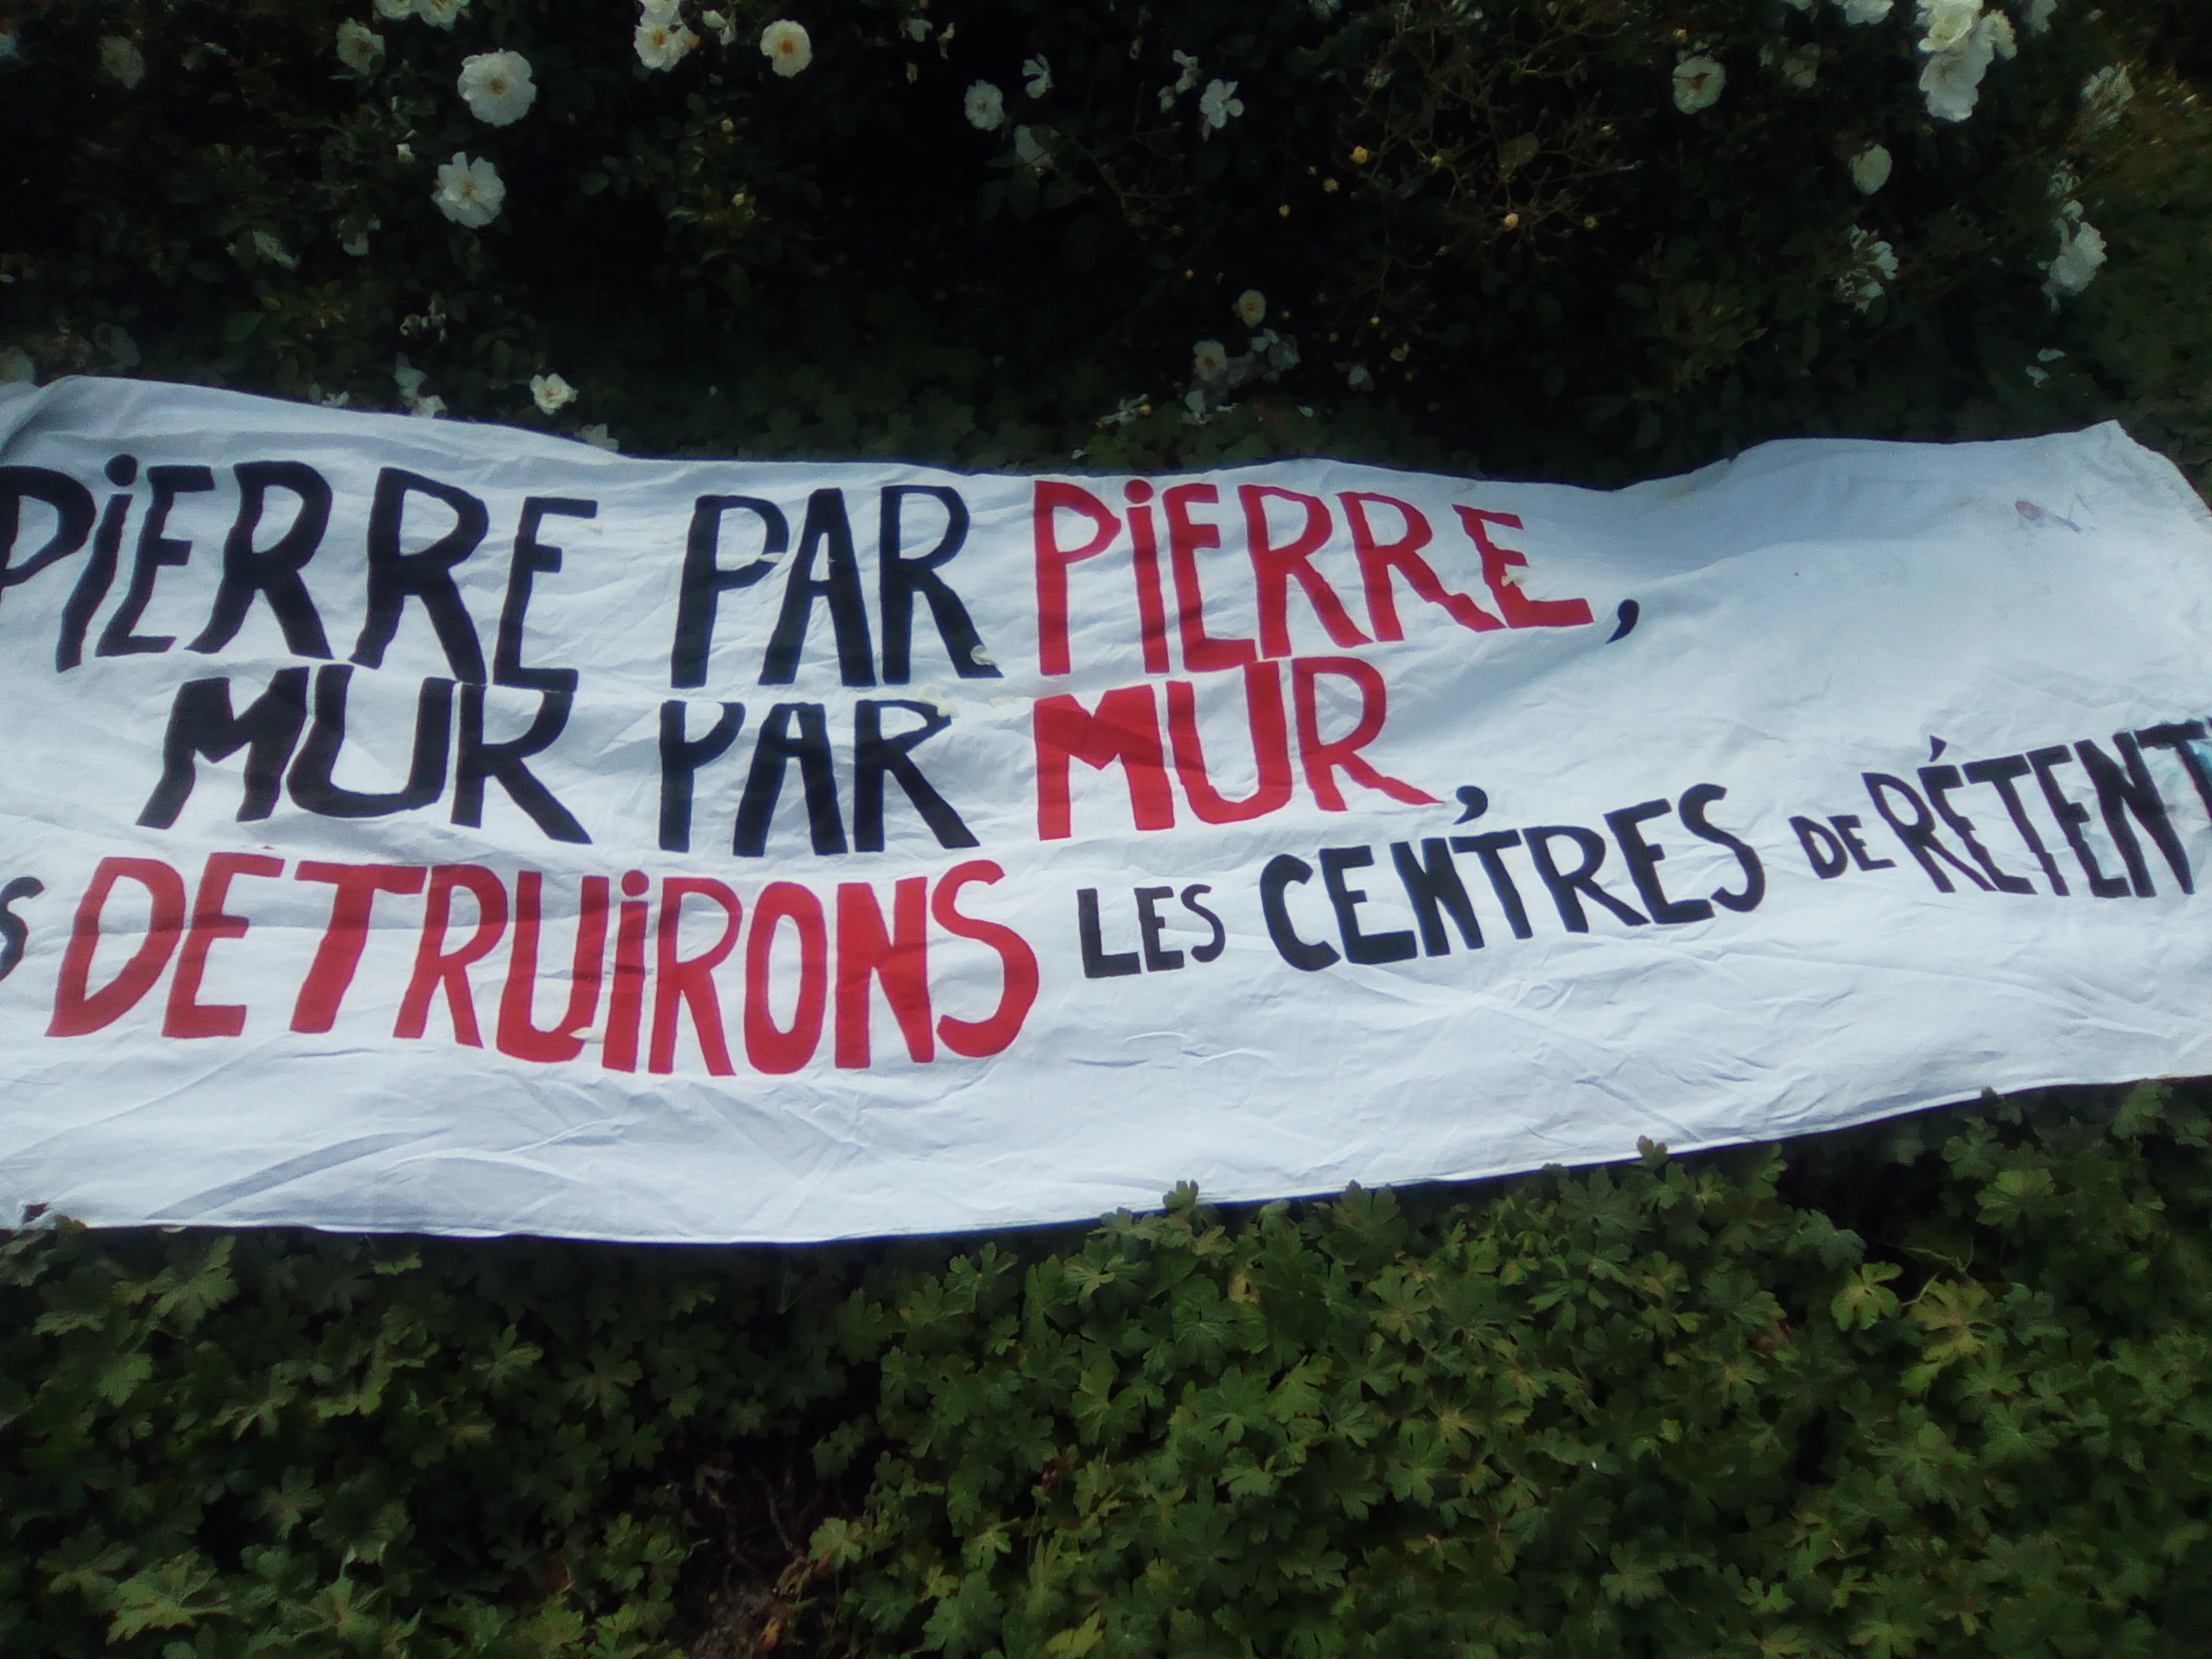 PiERRE PAR PiERRE,
MUR PAR MUR,
S DÉTRUiRONS LES CENTRES DE RÉTENT